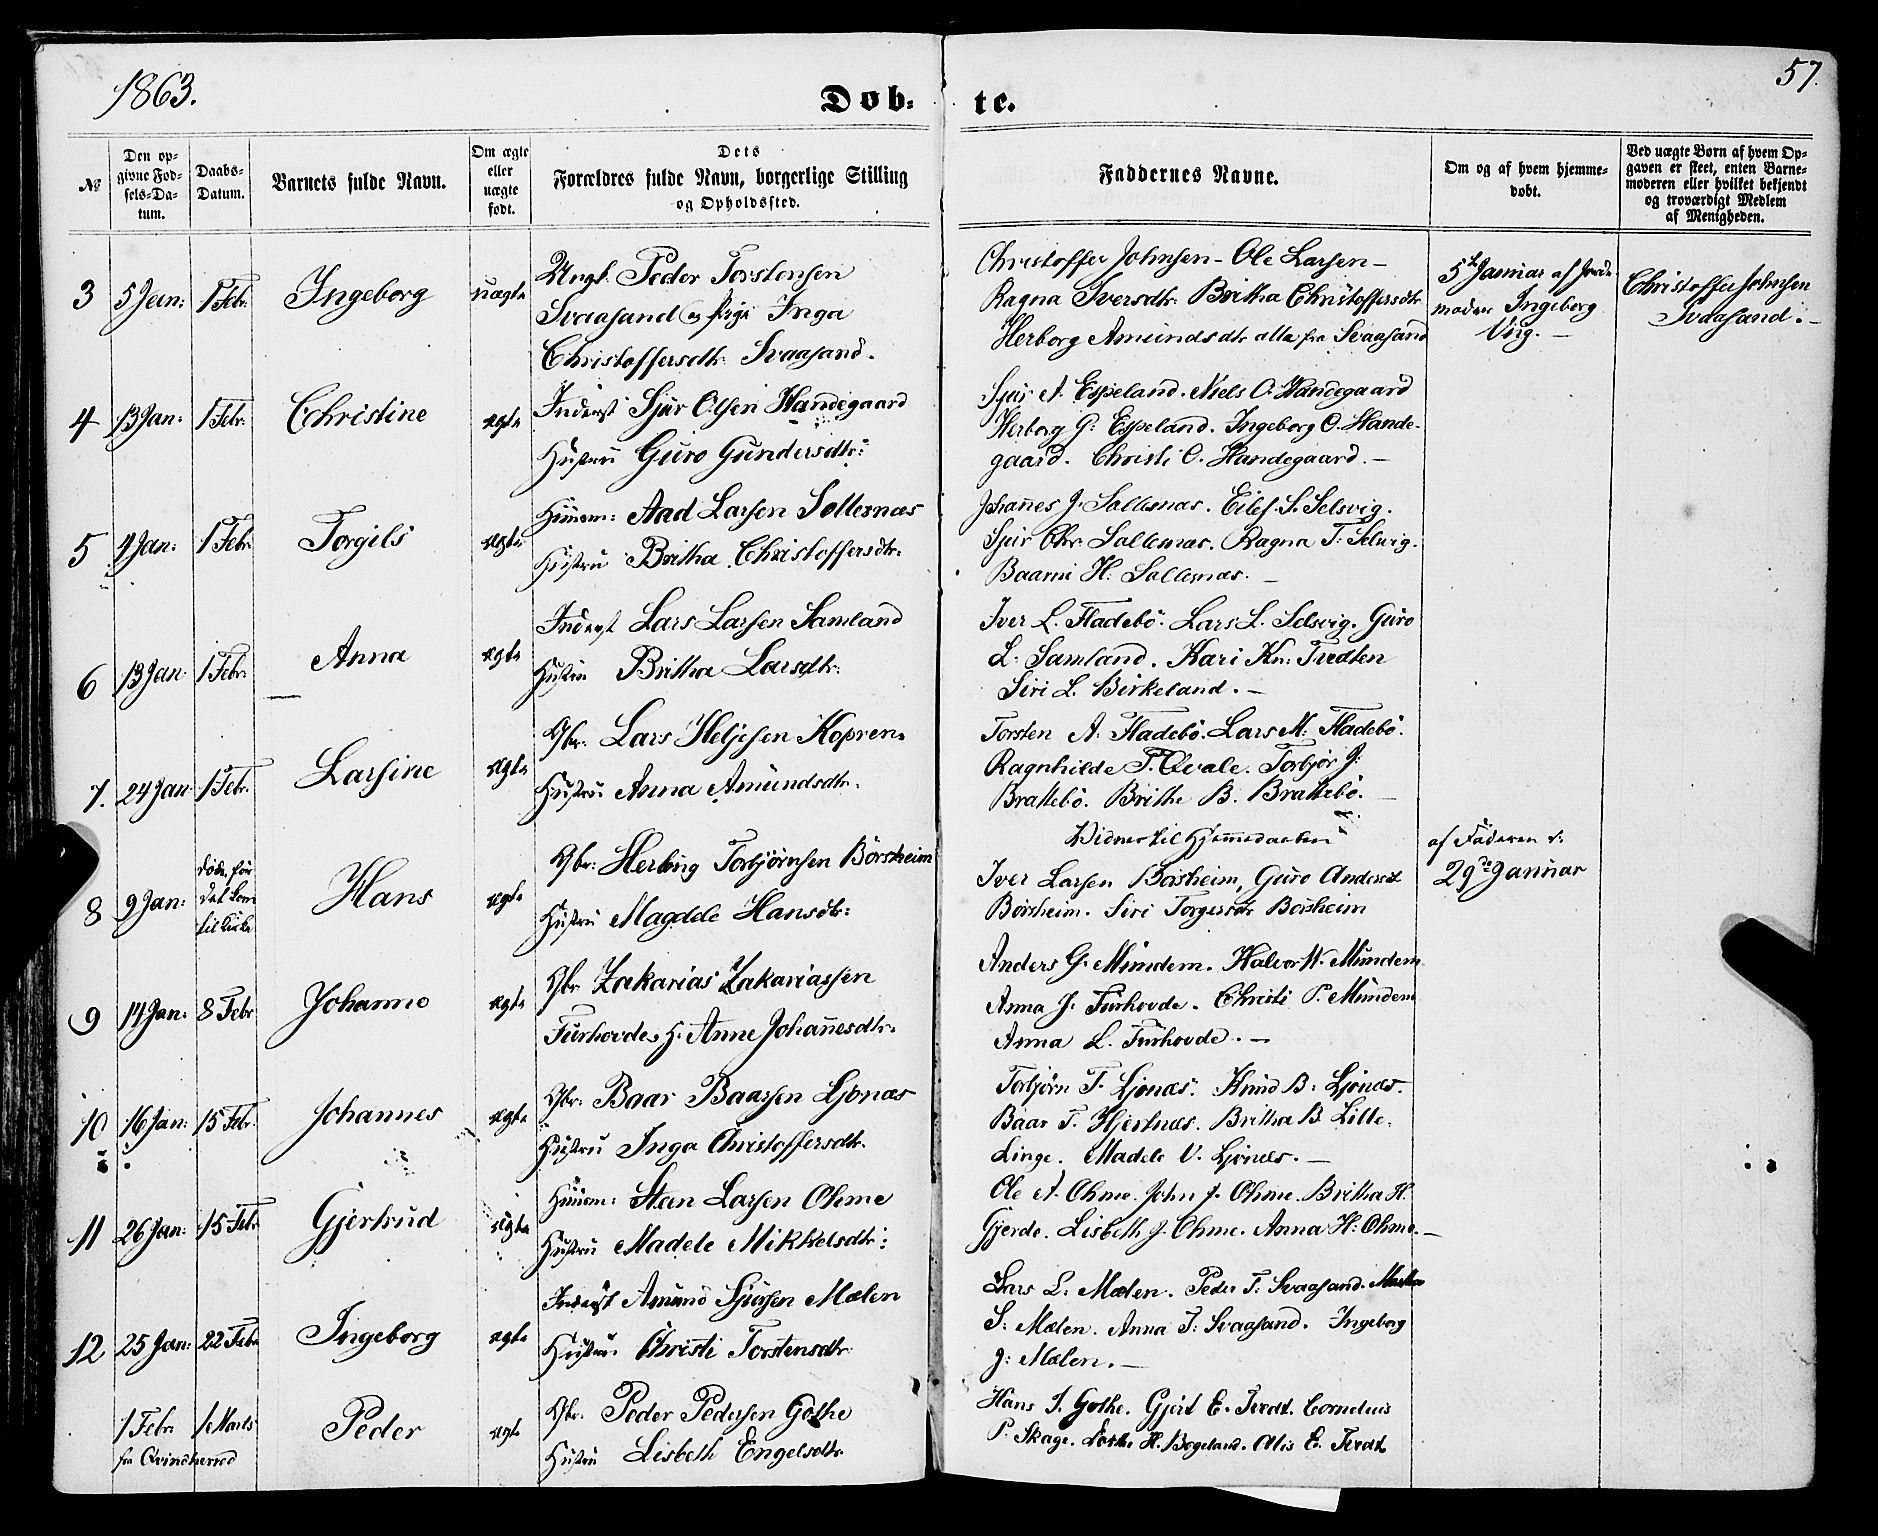 1863.
Døb-
te.
57.
№
Den op-
givne Fød-
sels-Da-
tum.
Daabs-
Datum.
Barnets fulde Navn.
Om ægte
eller
uægte
født.
Dets
Forældres fulde Navn, borgerlige Stilling
og Opholdssted.
Faddernes Navne.
Om og af hvem hjemme-
døbt.
Ved uægte Børn af hvem Op-
gaven er skeet, enten Barne-
moderen eller hvilket bekjendt
og troværdigt Medlem
af Menigheden.
3 5 Jan: 1 Febr: Ingeborg uægte
Ungk. Peder Torstensen
Svaasand og Pige Inga
Christoffersdtr. Svaasand.
Christoffer Johnsen - Ole Larsen -
Ragna Iversdtr. Britha Christoffersdtr
Herborg Amundsdtr alle fra Svaasand
5te Januar af Jorde-
moder Ingeborg
Vig. -
Christoffer Johnsen
Svaasand. -
4 13 Jan: 1 Febr: Christine ægte
Inderst Sjur Olsen Handegaard
Hustru Guro Gundersdtr:
Sjur A. Espeland. Niels O. Handegaard
Herborg G: Espeland. Ingeborg O. Hande-
gaard. Christi O. Handegaard. -
5 4 Jan: 1 Febr. Torgils ægte
Huusm: Aad Larsen Sollesnæs
Hustru Britha Christoffersdtr.
Johannes J. Sollesnæs. Eilef S. Selsvig.
Sjur Chr. Sollesnæs. Ragna T. Selsvig.
H: Sollesnæs. -
6 13 Jan 1 Febr. Anna ægte
Inderst Lars Larsen Samland
Hustru Britha Larsdtr.
Iver L. Fladebö. Lars L. Selsvig. Guro
L. Samland. Kari Kn: Tvedten
Siri L. Birkeland. -
7. 24 Jan 1 Febr. Larsine ægte
Gbr: Lars Heljesen Kopren.
Hustru Anna Amundsdtr.
Torsten A. Fladebö. Lars M. Fladebö.
Ragnhilde T. Qvale. Torbjør J:
Brattebö. Brithe B. Brattebö.
8 9 Jan: døde før
det kom
til Kirke Hans ægte
Gbr: Herbrig Torbjørnsen Börsheim
Hustru Magdele Hansdtr:
Vidner til Hjemmedaaben
Iver Larsen Börsheim, Guro Andersdt
Börsheim. Siri Torgersdtr Börsheim
af Faderen d.
29de Januar
9 14 Jan: 8 Febr Johanne ægte
Gbr Zakarias Zakariassen
Furhovde, H. Anne Johannesdtr.
Anders G. Mundem. Halvor W. Mundem
Anna J. Furhovde. Christi P. Mundem
Anna L. Furhovde. -
10 16 Jan: 15 Febr. Johannes ægte
Gbr: Baar Baarsen Ljonæs
Hustru Inga Christoffersdtr.
Torbjörn T. Ljonæs. Knud B: Ljonæs.
Baar T. Hjertnæs. Britha B. Lille-
Linge. Madele V. Ljonæs. -
11 26 Jan: 15 Febr Gjertrud ægte
Huusm: Sten Larsen Ohme
Hustru Madele Mikkelsdtr:
Ole A. Ohme. John J. Ohme. Britha H.
Gjerde. Lisbeth J. Ohme. Anna H: Ohme. -
12 25 Jan: 22 Febr Ingeborg ægte
Inderst Amund Sjursen Mælen
Hustru Christi Torstensdtr
Lars L. Mælen. Peder T: Svaasand. Martha
S: Mælen. Anna T: Svaasand. Ingeborg
J: Mælen. -
1 Febr. 1 Marts Peder ægte
fra Qvindherred
Gbr. Peder Pedersen Gothe
Hustru Lisbeth Engelsdtr
Hans J. Gothe. Gjert E. Tvedt. Cornelius
P. Skage. H. Bogeland. Alis E. Tvedt